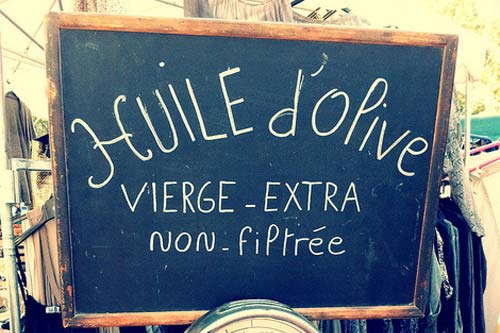 HUILE d'Olive
VIERGE - EXTRA
NON - filtrée